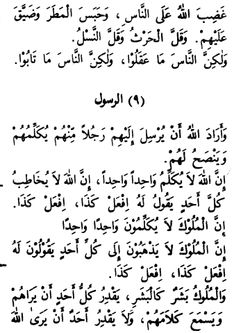 غَضِبَ اللهُ عَلَى النَّاسِ ، وَحَبَسَ الْمَطَرَ وَضَيَّقَ
عَلَيْهِمْ. وَقَلَّ الْحَرْثُ وَقَلَّ النَّسْلُ.
وَلٰكِنَّ النَّاسَ مَا عَقَلُوْا، وَلٰكِنَّ النَّاسَ مَا تَابُوْا.
(٩) الرسول
وَأَرَادَ اللهُ أَنْ يُرْسِلَ إِلَيْهِمْ رَجُلاً مِنْهُمْ يُكَلِّمُهُمْ
وَيَنْصَحُ لَهُمْ.
إِنَّ اللهَ لاَ يُكَلِّمُ وَاحِداً وَاحِداً، إِنَّ اللهَ لاَ يُخَاطِبُ
كُلَّ أَحَدٍ يَقُوْلُ لَهُ اِفْعَلْ كَذَا، اِفْعَلْ كَذَا.
إِنَّ الْمُلُوْكَ لاَ يُكَلِّمُوْنَ وَاحِدًا وَاحِدًا
إِنَّ الْمُلُوْكَ لاَ يَذْهَبُوْنَ إِلَى كُلِّ أَحَدٍ يَقُوْلُوْنَ لَهُ
اِفْعَلْ كَذَا، اِفْعَلْ كَذَا.
وَالْمُلُوكُ بَشَرٌ كَالْبَشَرِ، يَقْدِرُ كُلُّ أَحَدٍ أَنْ يَرَاهُمْ
وَيَسْمَعَ كَلاَمَهُمْ، وَلاَ يَقْدِرُ أَحَدٌ أَنْ يَرىٰ اللهَ